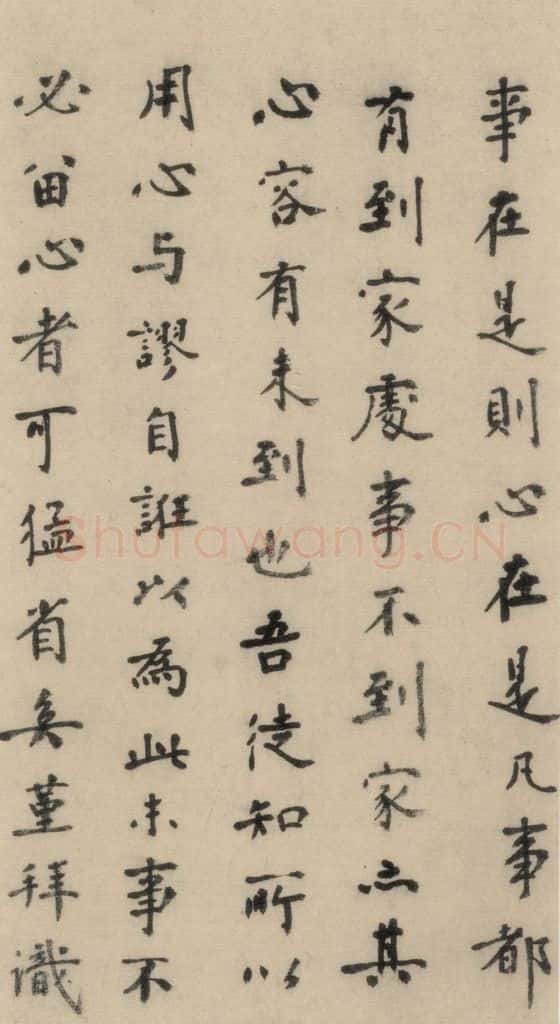 事在是則心在是凡事都
有到家處事不到家亦其
心容有未到也吾徒知所以
用心与謬自誑以為此末事不
必畱心者可猛省矣堇拜識
Shufawang.CN